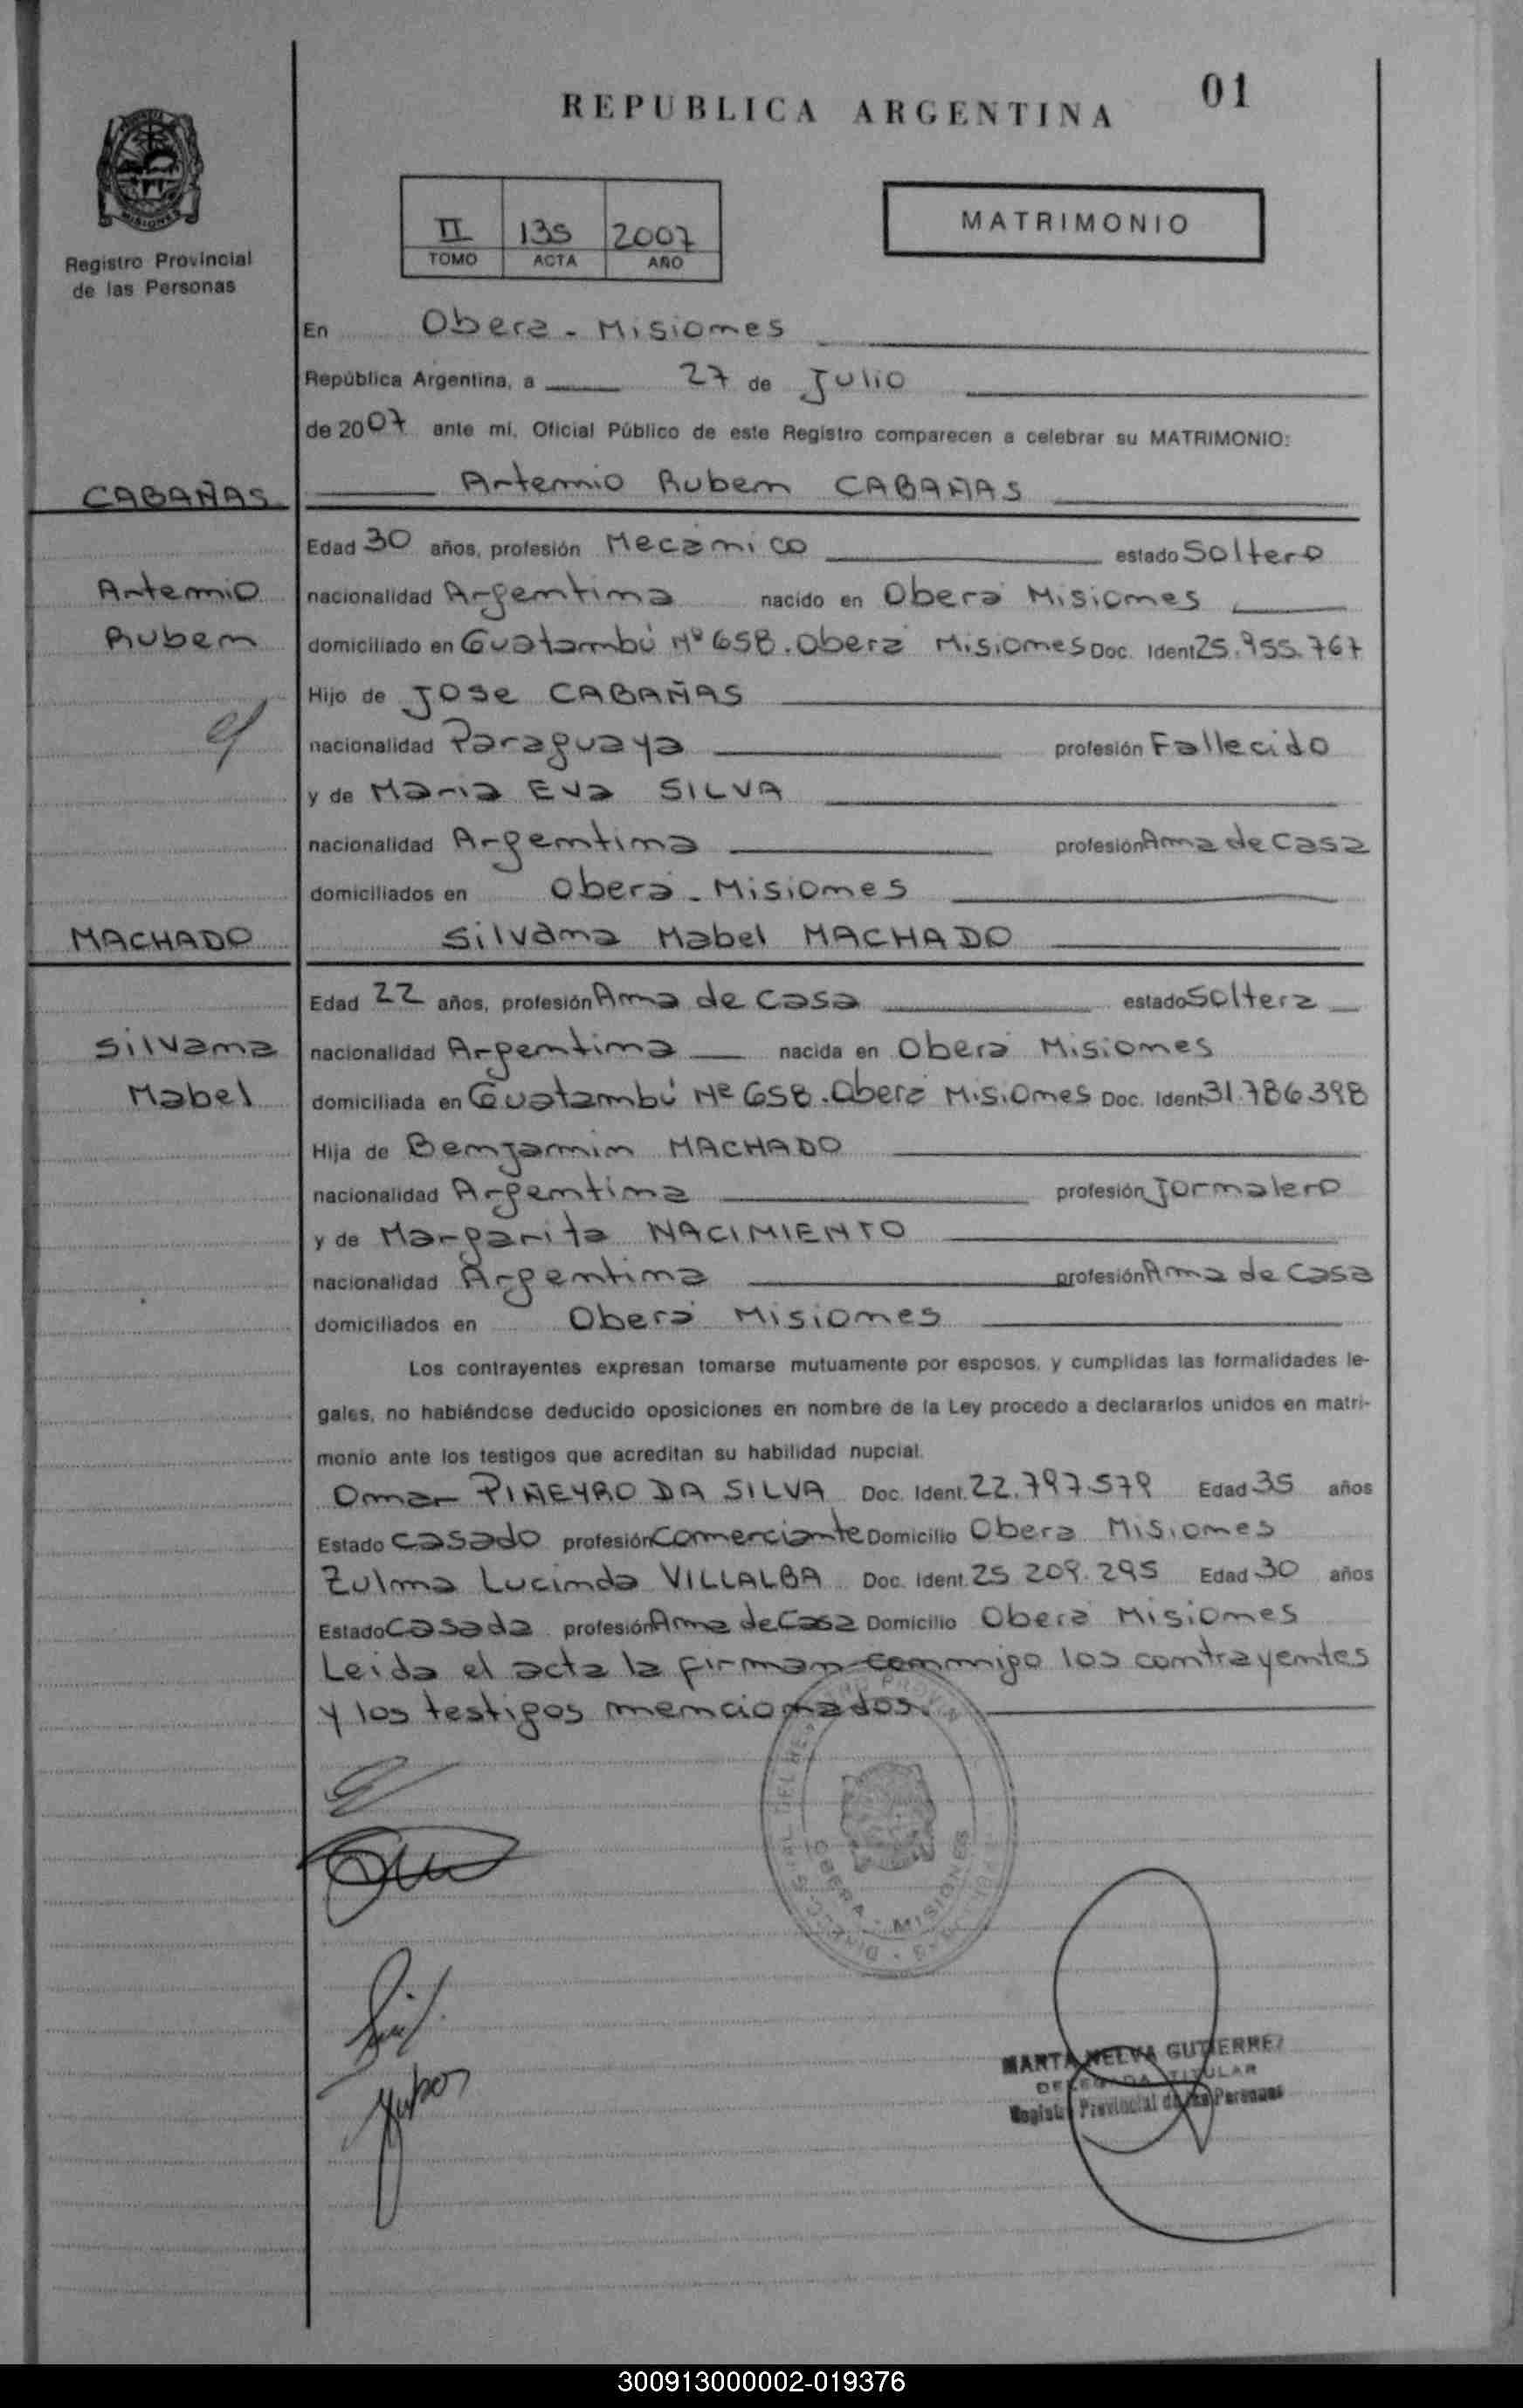 01
REPUBLICA ARGENTINA
MISIONES
Registro Provincial
de las Personas
II 135 2007
TOMO ACTA AÑO
MATRIMONIO
En Oberá - Misiones
República Argentina, a 27 de Julio
de 2007 ante mí, Oficial Público de este Registro comparecen a celebrar su MATRIMONIO:
CABAÑAS Artemio Ruben CABAÑAS
Edad 30 años, profesión Mecánico estado Soltero
Artemio nacionalidad Argentina nacido en Oberá Misiones
Ruben domiciliado en Guatambú Nº 658. Oberá Misiones Doc. Ident 25.955.767
Hijo de José CABAÑAS
nacionalidad Paraguaya profesión Fallecido
y de Maria Eva SILVA
nacionalidad Argentina profesión Ama de Casa
domiciliados en Oberá - Misiones
MACHADO Silvana Mabel MACHADO
Edad 22 años, profesión Ama de Casa estado Soltera
Silvana nacionalidad Argentina nacida en Oberá Misiones
Mabel domiciliada en Guatambú Nº 658. Oberá Misiones Doc. Ident 31.786.398
Hija de Benjamin MACHADO
nacionalidad Argentina profesión Jornalero
y de Margarita NACIMIENTO
nacionalidad Argentina profesión Ama de Casa
domiciliados en Oberá Misiones
Los contrayentes expresan tomarse mutuamente por esposos, y cumplidas las formalidades le-
gales, no habiéndose deducido oposiciones en nombre de la Ley procedo a declararlos unidos en matri-
monio ante los testigos que acreditan su habilidad nupcial.
Omar PIÑEYRO DA SILVA Doc. Ident. 22.797.579 Edad 35 años
Estado Casado profesión Comerciante Domicilio Oberá Misiones
Zulma Lucinda VILLALBA Doc. Ident. 25 209.295 Edad 30 años
Estado Casada profesión Ama de Casa Domicilio Oberá Misiones
Leida el acta la firman conmigo los contrayentes
y los testigos mencionados.
OBERA - MISIONES
MARTA NELVA GUTIERREZ
DELEGADA TITULAR
Registro Provincial de las Personas
300913000002-019376